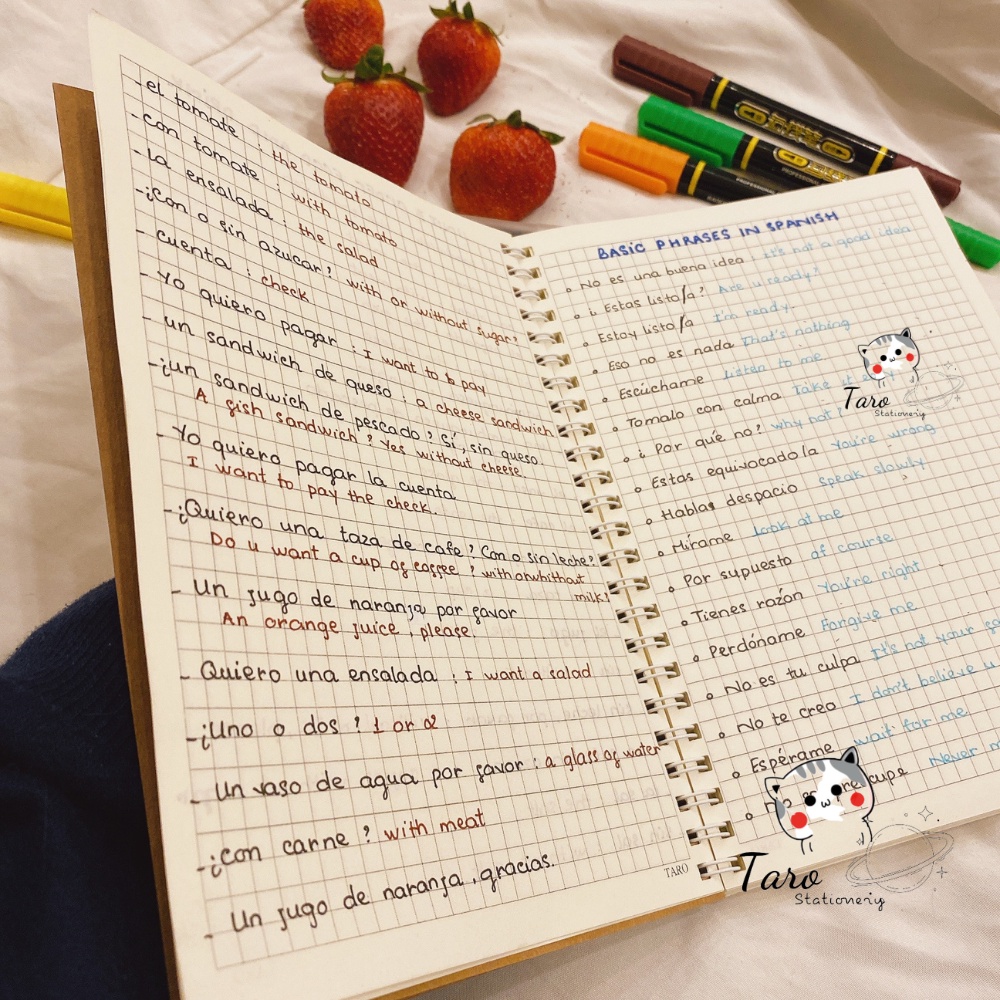 - el tomate : the tomato
- con tomate : with tomato
- la ensalada : the salad
- ¿Con o sin azucar? with or without sugar?
- cuenta : check
- Yo quiero pagar : I want to pay
- un sandwich de queso : a cheese sandwich
- ¿un sandwich de pescado? Sí, sin queso.
A fish sandwich? Yes without cheese.
- Yo quiero pagar la cuenta
I want to pay the check.
- ¿Quiero una taza de cafe? Con o sin leche?
Do u want a cup of coffee? with or whithout
milk?
- Un jugo de naranja por favor
An orange juice, please.
- Quiero una ensalada : I want a salad
- ¿Uno o dos? 1 or 2
- Un vaso de agua por favor : a glass of water
- ¿con carne? with meat
- Un jugo de naranja, gracias.
TARO
BASIC PHRASES IN SPANISH
No es una buena idea It's not a good idea
¿Estas listo/a? Are u ready?
Estoy listo/a I'm ready.
Eso no es nada That's nothing
Escúchame listen to me
Tomalo con calma Take it
¿Por qué no? why not
Estas equivocado la You're wrong
Hablas despacio speak slowly
Mírame look at me
Por supuesto of course
Tienes razón You're right
Perdóname Forgive me
No es tu culpa It's not your
No te creo I don't believe u
Espérame wait for me
cupe Never
Taro
Stationeriy
Taro
Stationeriy